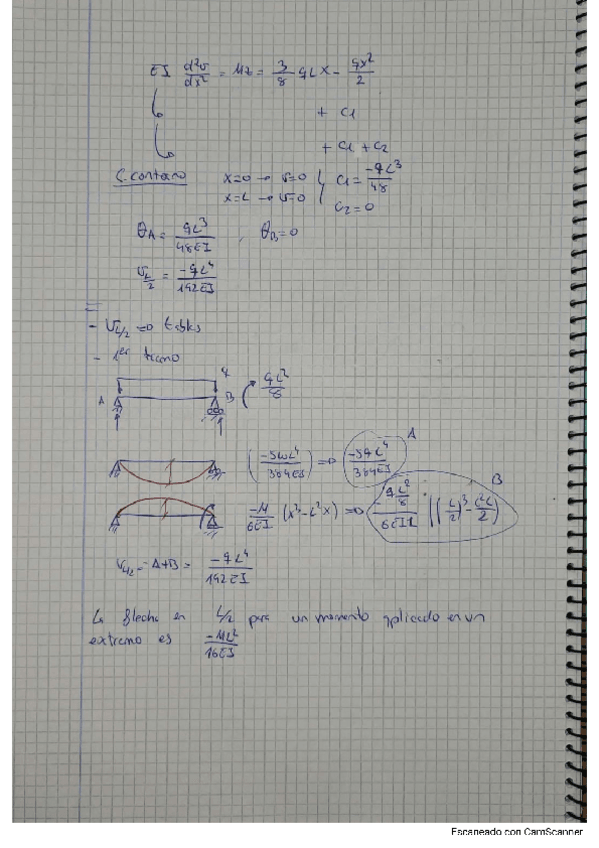 EI d²v/dx² = Mz = 3/8 qLx - qx²/2
+ C1
+ C1 + C2
C. contorno x=0 → v=0 C1 = -qL³/48
x=L → v=0 C2=0
θA = qL³/48EI , θB=0
vL/2 = -qL⁴/192EI
- VL/2 => tablas
- 1er tramo
q
A B qL²/8
(-5wL⁴/384EI) => -5qL⁴/384EI A
-M/6EIL (x³-L²x) => qL²/8 / 6EIL · ((L/2)³ - L²L/2) B
VL/2 = -A+B = -qL⁴/192EI
La flecha en L/2 para un momento aplicado en un
extremo es -ML²/16EI
Escaneado con CamScanner